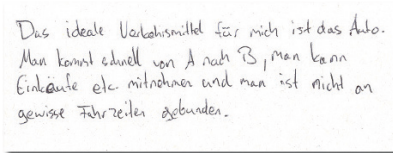 Das ideale Verkehrsmittel für mich ist das Auto.
Man kommt schnell von A nach B, man kann
Einkäufe etc. mitnehmen und man ist nicht an
gewisse Fahrzeiten gebunden.